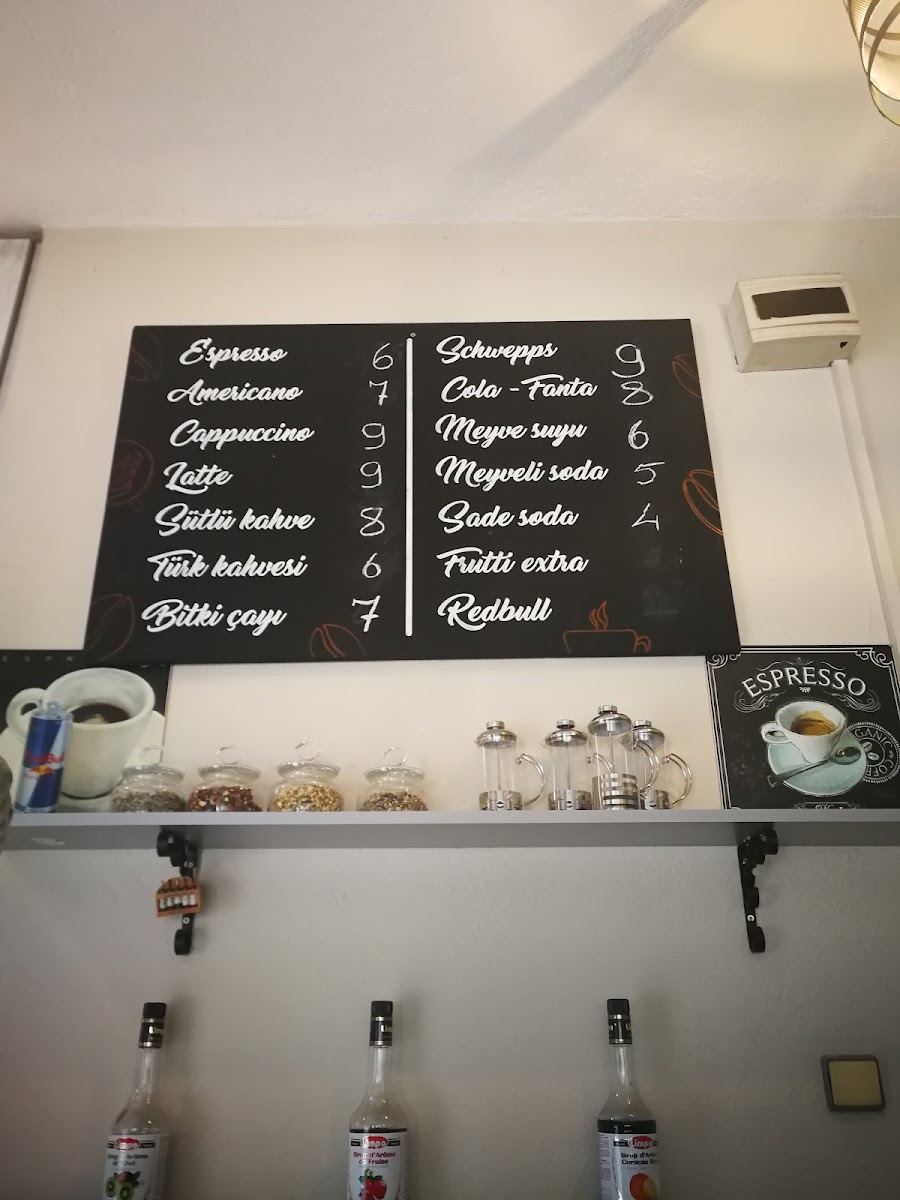 Espresso 6
Americano 7
Cappuccino 9
Latte 9
Sütlü kahve 8
Türk kahvesi 6
Bitki çayı 7
Schwepps 9
Cola - Fanta 8
Meyve suyu 6
Meyveli soda 5
Sade soda 4
Frutti extra
Redbull
ESPRESSO
Sirop d'Arôme
de Fraise
Sirop d'Arôme